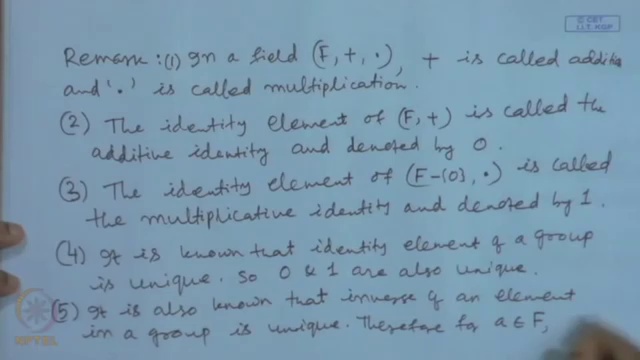 © CET
I.I.T. KGP
Remark : (1) In a field (F, +, ·), + is called additio
and '·' is called multiplication.
(2) The identity element of (F, +) is called the
additive identity and denoted by 0.
(3) The identity element of (F-{0}, ·) is called
the multiplicative identity and denoted by 1.
(4) It is known that identity element of a group
is unique. So 0 & 1 are also unique.
(5) It is also known that inverse of an element
in a group is unique. Therefore for a ∈ F,
NPTEL